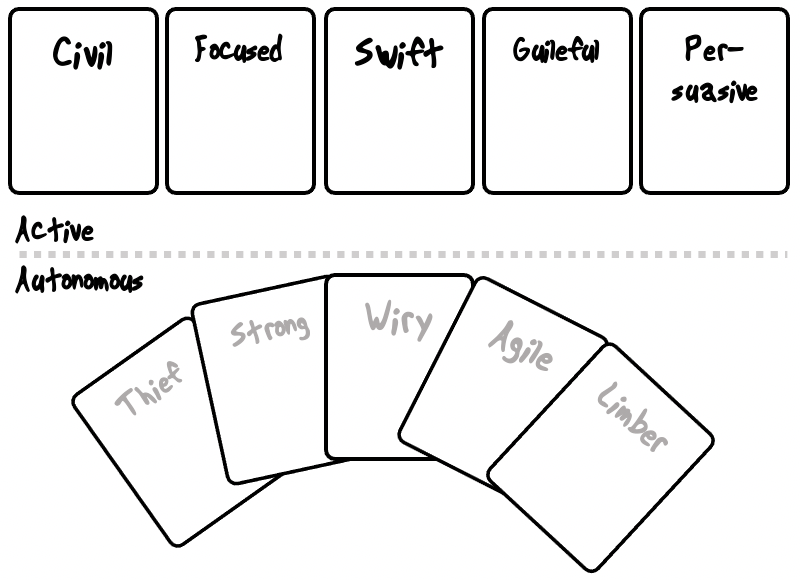 Civil
Focused
Swift
Guileful
Per-
suasive
Active
Autonomous
Thief
Strong
Wiry
Agile
Limber